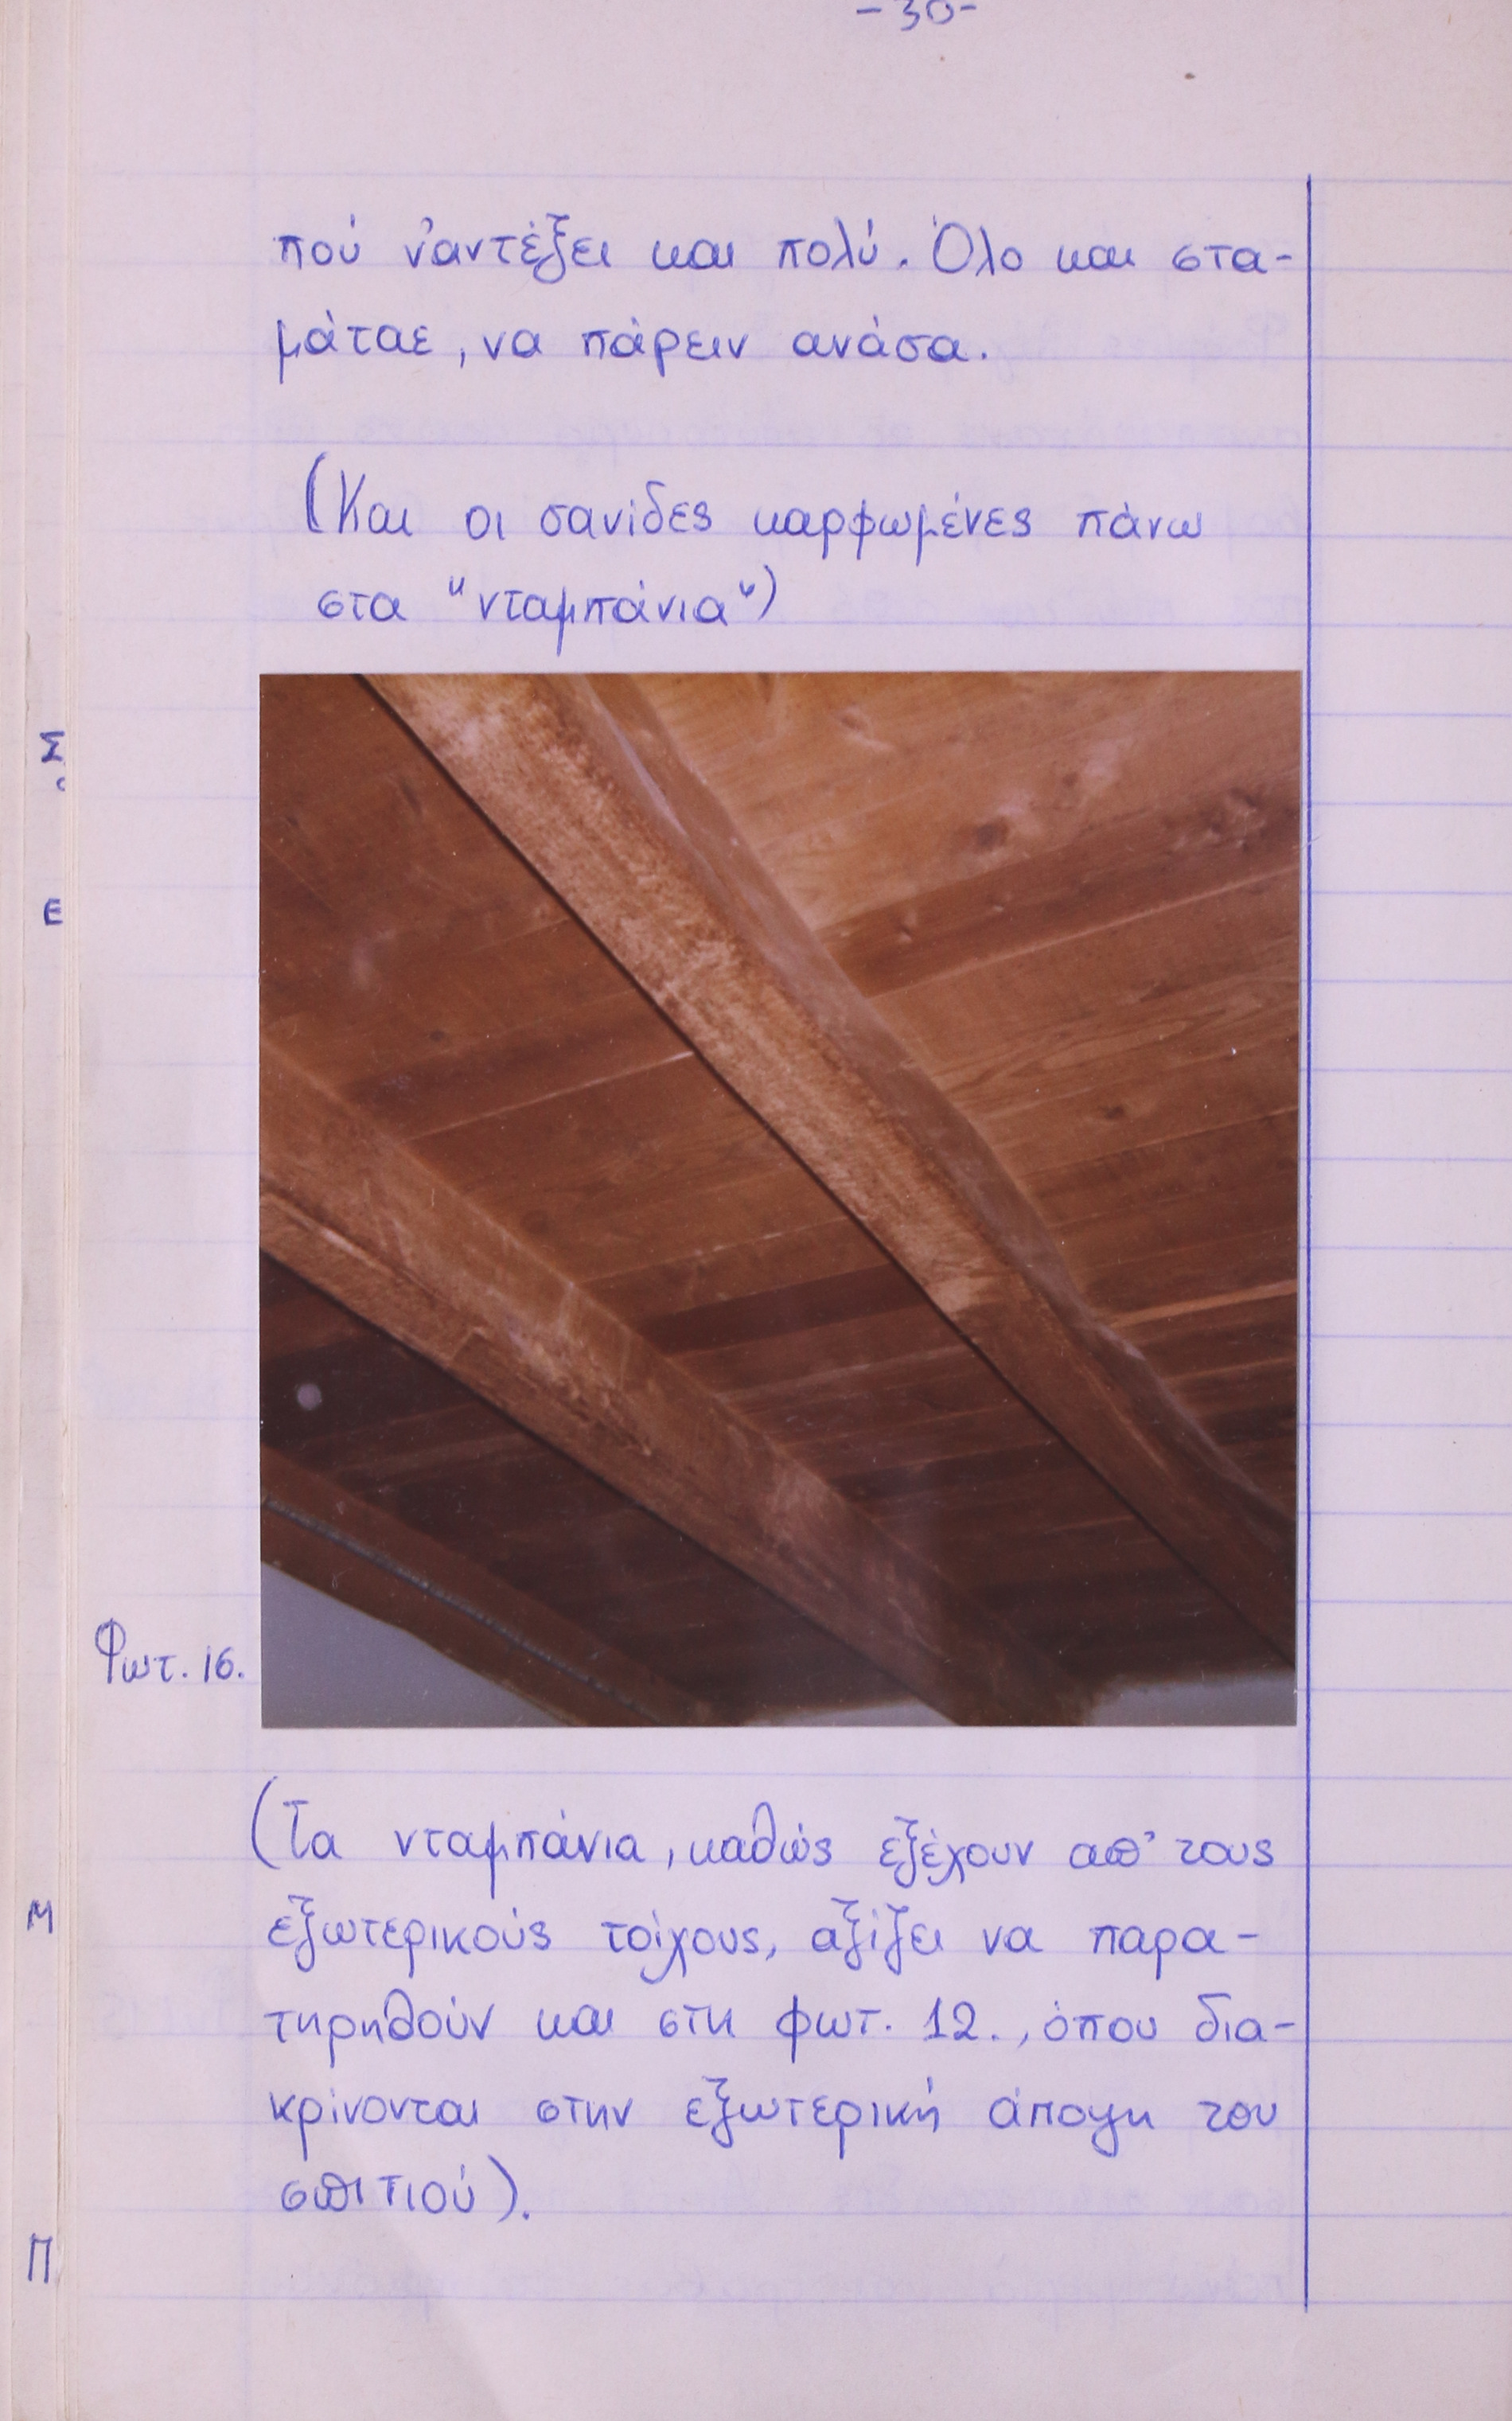 -30-
πού ν'αντέξει και πολύ. Όλο και στα-
μάταε, να πάρειν ανάσα.
(Και οι σανίδες καρφωμένες πάνω
στα "νταμπάνια")
Σ
Ε
Φωτ. 16.
(Τα νταμπάνια, καθώς εξέχουν απ' τους
εξωτερικούς τοίχους, αξίζει να παρα-
τηρηθούν και στη φωτ. 12., όπου δια-
κρίνονται στην εξωτερική άποψη του
σπιτιού).
Μ
Π